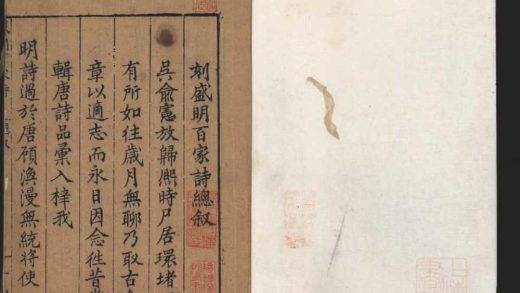 刻盛明百家詩總叙
吳俞憲放歸熙時尸居環堵
有所如往歲月無聊乃取古
章以適志而永日因念徃昔
輯唐詩品彙入梓我
明詩過於唐顧漁漫無統將使